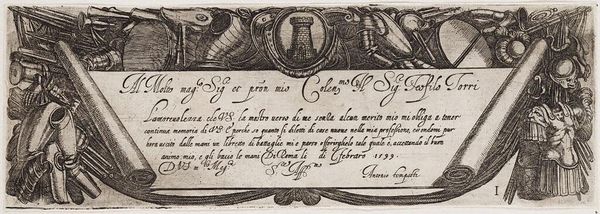 Al Molto mag.co Sig.r et prōn mio Colen.mo Il Sig.r Teofilo Torri
L'amorevolenza che V.S. ha mostro verso di me senza alcun merito mio mi obliga a tener
continua memoria di V.S. E perche so quanto si diletti di cose nuove nella mia professione, essendomi pur
hora uscito dalle mani un libretto di battaglie mi e parso offerirghelo tale quale e, accettando il buon
animo mio, e gli bacio le mani Di Roma li di Febraro 1599.
D V S Mag.ca S.re Aff.mo
Antonio Tempesti
1